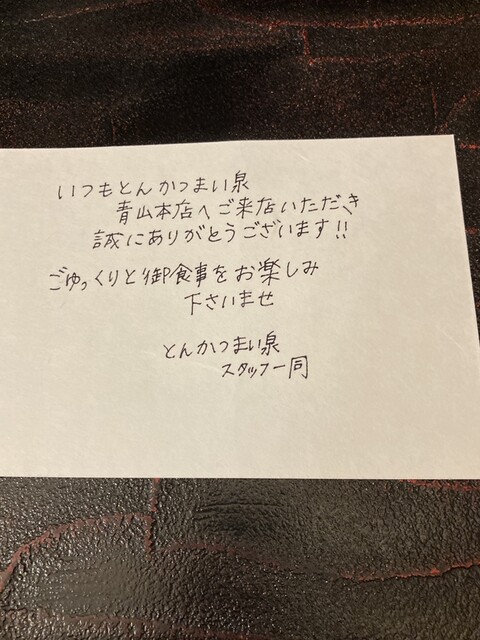 いつもとんかつまい泉
青山本店へご来店いただき
誠にありがとうございます!!
ごゆっくりと御食事をお楽しみ
下さいませ
とんかつまい泉
スタッフ一同